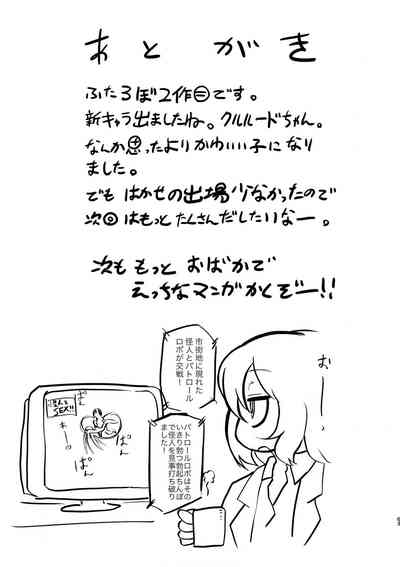 あとがき
ふたろぼ2作目です。
新キャラ出ましたね。クルルードちゃん。
なんか思ったよりかわいい子になり
ました。
でもはかせの出場少なかったので
次回はもっとたくさんだしたいなー。
次ももっとおばかで
えっちなマンガかくぞー!!
市街地に現れた
怪人とパトロール
ロボが交戦!
お
ぱん
ぱん
ぱん
パトロールロボはその
いきり勃つ勃起ちんぽ
で怪人を見事打ち破り
ました!